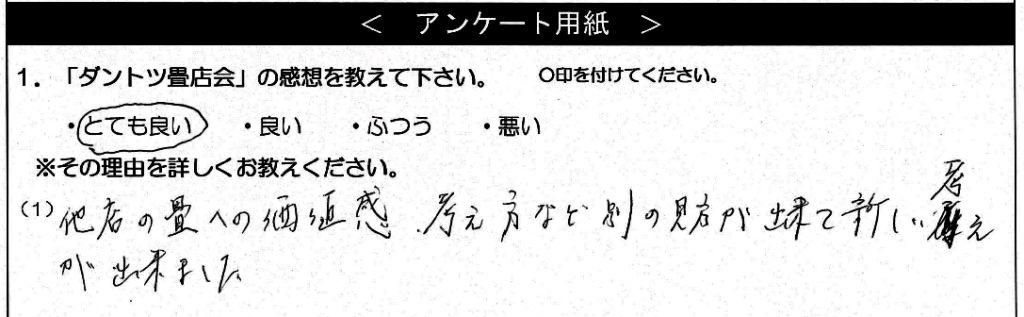 ＜ アンケート用紙 ＞
1. 「ダントツ畳店会」の感想を教えて下さい。 ○印を付けてください。
・とても良い ・良い ・ふつう ・悪い
※その理由を詳しくお教えください。
(1) 他店の畳への価値感、考え方など別の見方が出来て新しい考え
が出来ました